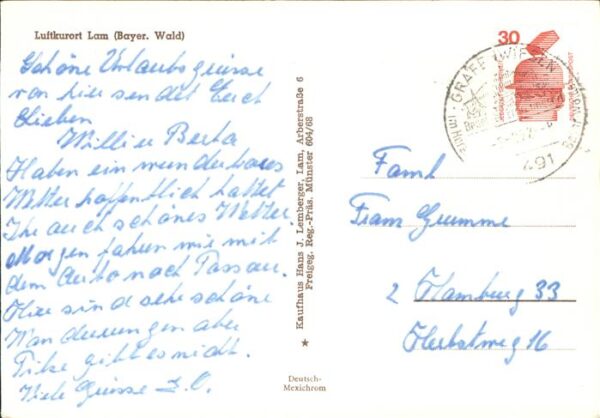 Luftkurort Lam (Bayer. Wald)
Schöne Urlaubsgrüsse
von hier sendet Euch
Lieben
Willi u Berta
Haben ein wunderbares
Wetter hoffentlich hattet
Ihr auch schönes Wetter.
Morgen fahren wir mit
dem Auto nach Passau.
Hier sind sehr schöne
Wanderungen aber
Pilze gibt es nicht.
Viele Grüsse
Kaufhaus Hans J. Lemberger, Lam, Arberstraße 6
Freigeg. Reg.-Präs. Münster 604/68
Deutsch-
Mexichrom
30
GRAFE
491
Faml
Franz Grumme
2 Hamburg 33
Herbstweg 16